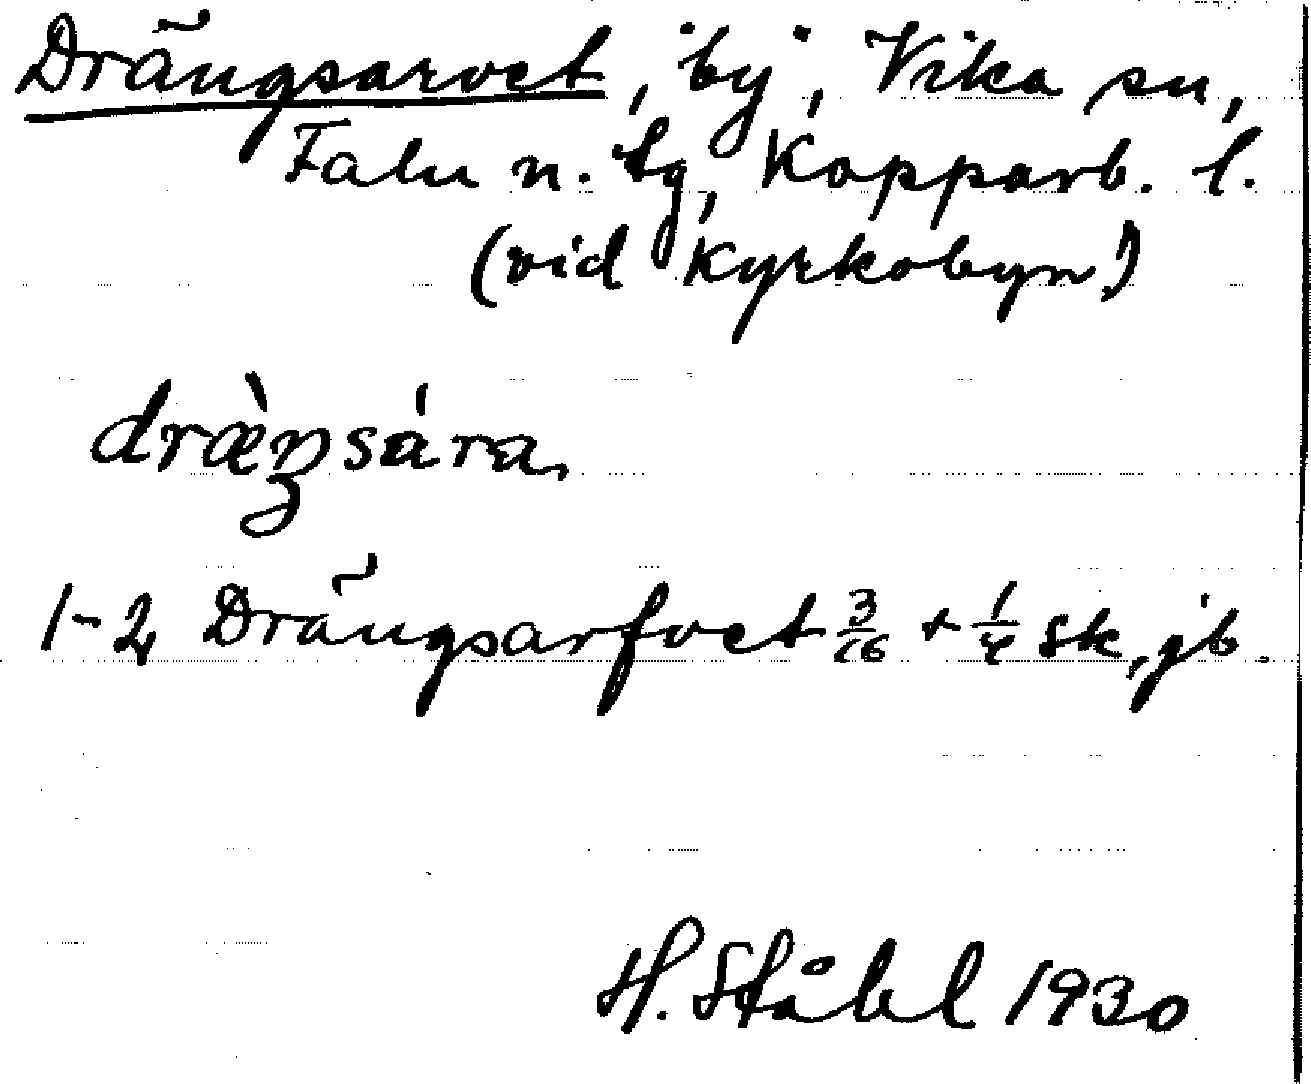 Drängsarvet, "by", Vika sn,
Falu n. tg, Kopparb. l.
(vid kyrkobyn)
dræ̀ŋsára,
1-2 Drängsarfvet 3/16 + 1/4 sk, jb.
H. Ståhl 1930